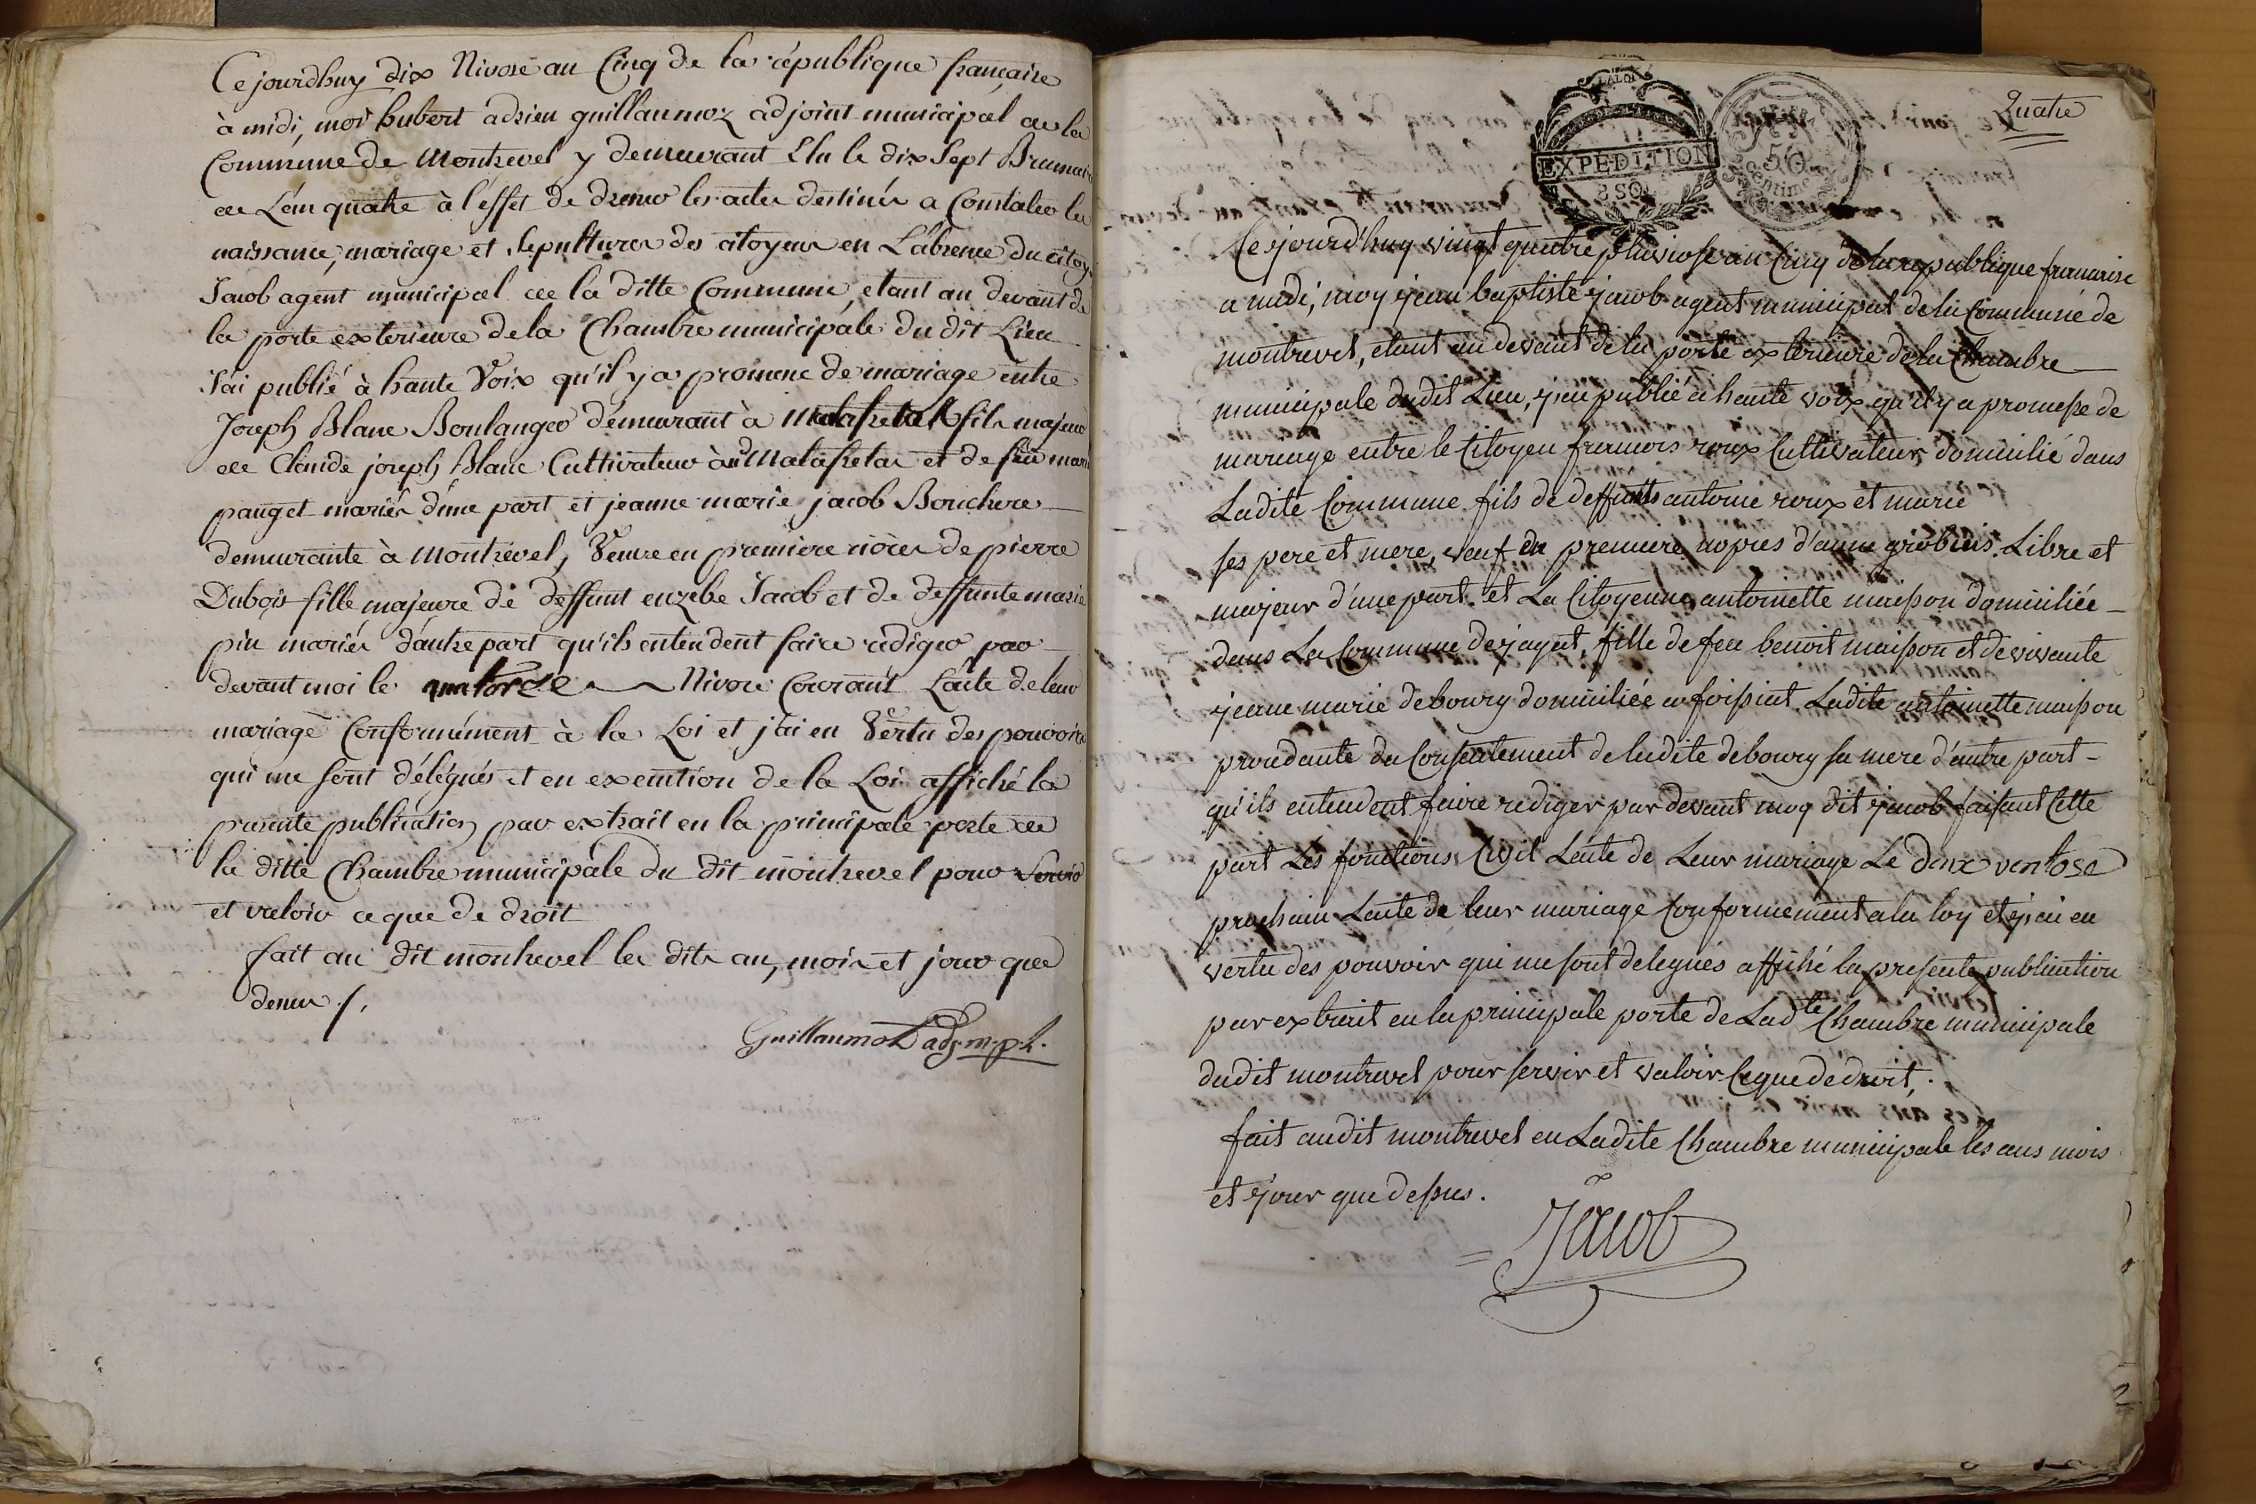 Ce jourdhuy dix Nivose an Cinq de la république française
à midi, moi hubert adrien guillaumoz adjoint municipal de la
Commune de Montrevel y demeurant Elu le dix Sept Brumaire
de L'an quatre à l'effet de dresser les actes destinés a Constater les
naissance, mariage et Sepultures des citoyens en L'absence du citoy
Jacob agent municipal de la ditte Commune, etant au devant de
la porte exterieure de la Chambre municipale du dit Lieu
J'ai publié à haute Voix qu'il y a promesse de mariage entre
Joseph Blanc Boulanger demeurant à Malafretal fils majeur
de Claude joseph Blanc Cultivateur au Malafretas et de feu marie
pauget mariés d'une part et jeanne marie jacob Bouchere
demeurante à Montrevel, Veuve en premiere nôces de pierre
Dubois fille majeure de deffunt euzebe Jacob et de deffunte marie
pin mariés d'autre part qu'ils entendent faire rediger par
devant moi le quatorze Nivose Courant L'acte de leur
mariage Conformément à la Loi et j'ai en Vertu des pouvoirs
qui me sont délégués et en execution de la Loi affiché la
presente publication par extrait en la principale porte de
la ditte Chambre municipale du dit montrevel pour Servir
et valoir ce que de droit
fait au dit montrevel les dits an, mois et jour que
dessus /.
Guillaumoz adj. m.pl.
LA LOI
EXPEDITION
8 SOLS
50
Centimes
Quatre
Cejourd'huy vingt quatre pluviose an Cinq de la republique francaise
a midi, moy jean baptiste jacob agent municipal de la Commune de
montrevel, etant au devant de la porte exterieure de la Chambre
municipale dudit Lieu, j'ai publié a haute voix qu'il y a promesse de
mariage entre le Citoyen francois roux Cultivateur domicilié dans
Ladite Commune fils de deffunts antoine roux et marie
ses pere et mere, veuf en premiere nopces d'anne Libre et
majeur d'une part. et La Citoyenne antoinette maison domiciliée
dans La Commune de jayat, fille de feu benoit maison et de vivante
jeanne marie debourg domiciliée a foissiat Ladite antoinette maison
procedante du Consentement de ladite debourg sa mere d'autre part -
qu'ils entendent faire rediger par devant moy dit jacob faisant Cette
part Les fonctions Civil Lacte de Leur mariage Le deux ventose
prochain Lacte de leur mariage Conformement a la loy et j'ai en
vertu des pouvoir qui me sont delegués affiché la presente publication
par extrait en la principale porte de Ladte Chambre municipale
dudit montrevel pour servir et valoir Ceque de droit,.
fait audit montrevel en Ladite Chambre municipale les ans mois
et jour que dessus.
Jacob